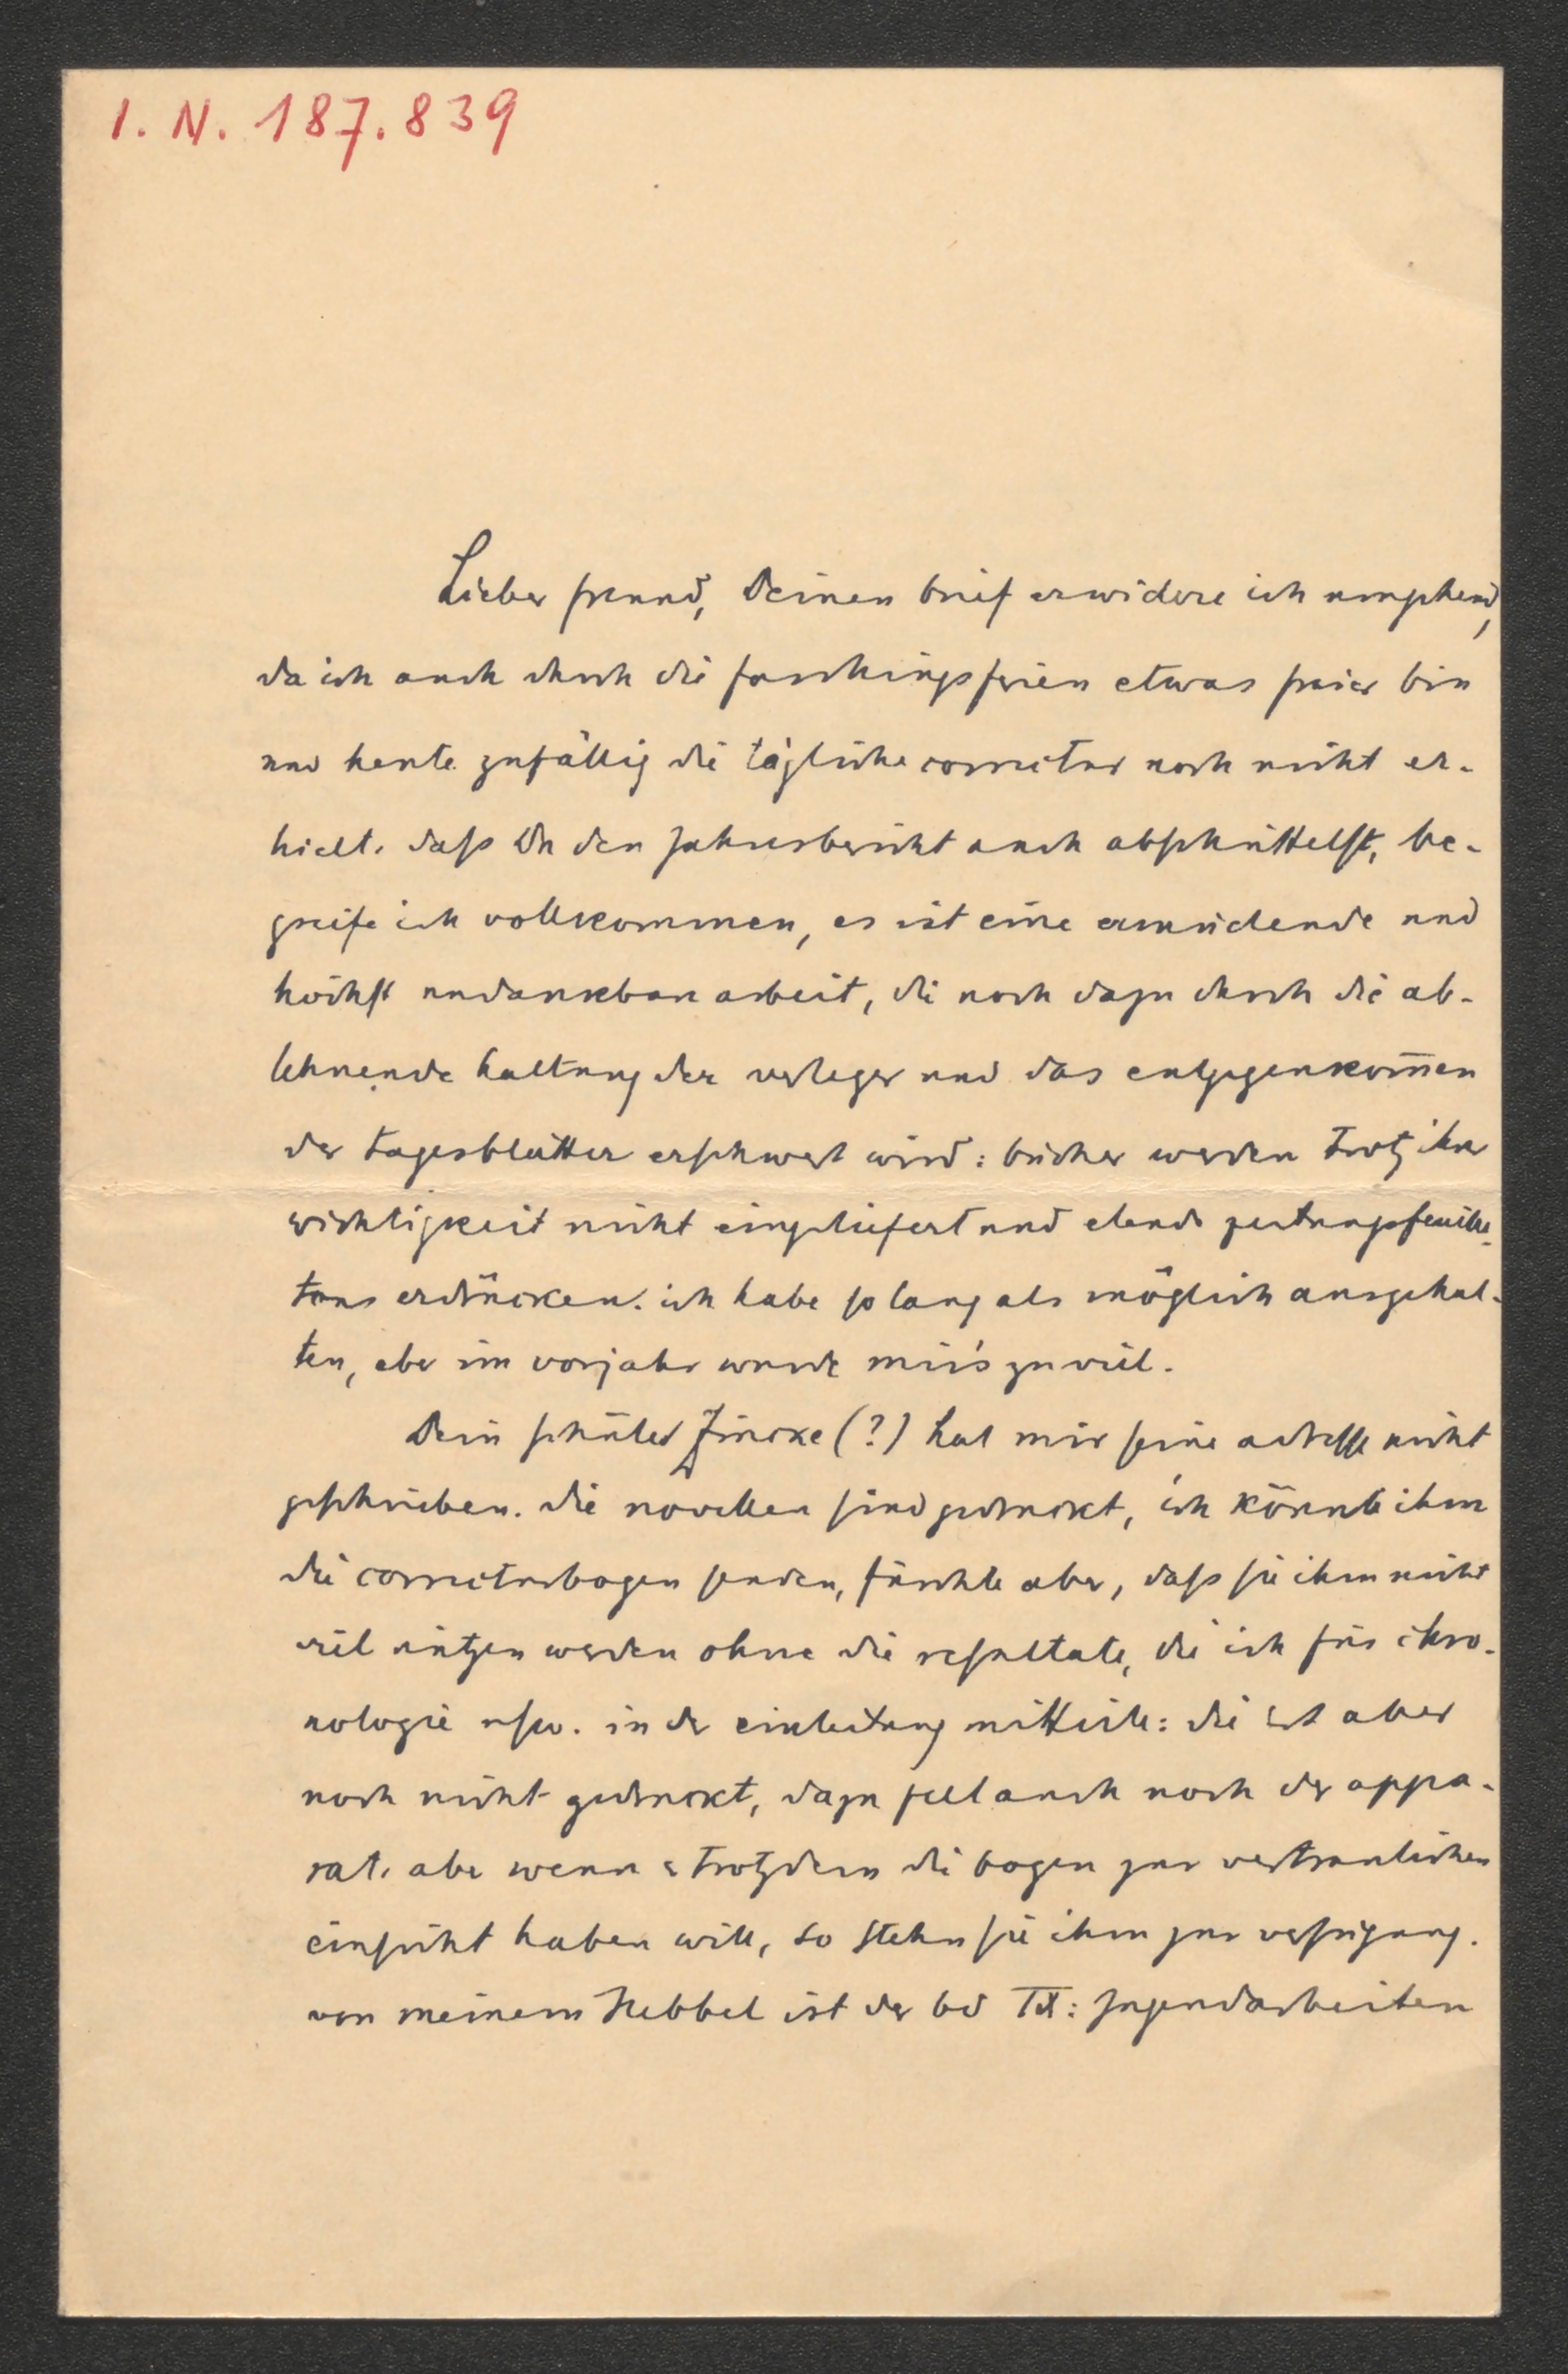 I. N. 187.839
Lieber freund, Deinen brief erwidere ich umgehend,
da ich auch durch die faschingsferien etwas freier bin
und heute zufällig die tägliche correctur noch nicht er-
hielt. daſs Du den Jahresbericht auch abschüttelst, be-
greife ich vollkommen, es ist eine ermüdende und
höchst undankbare arbeit, die noch dazu durch die ab-
lehnende haltung der verleger und das entgegenkom̄en
der tagesblätter erschwert wird: bücher werden trotz ihrer
wichtigkeit nicht eingeliefert und elende zeitungsfeuille-
tons erdrücken. ich habe so lang als möglich ausgehal-
ten, aber im vorjahr wurde mir's zu viel.
Dein schüler Zincke (?) hat mir seine adresse nicht
geschrieben. die novellen sind gedruckt, ich könnte ihm
die correcturbogen senden, fürchte aber, daſs sie ihm nicht
viel nützen werden ohne die resultate, die ich für chro-
nologie usw. in der einleitung mitteile: die ist aber
noch nicht gedruckt, dazu felt auch noch der appa-
rat. aber wenn er trotzdem die bogen zur vertraulichen
einsicht haben will, so stehn sie ihm zur verfügung.
von meinem Hebbel ist der bd IX: Jugendarbeiten